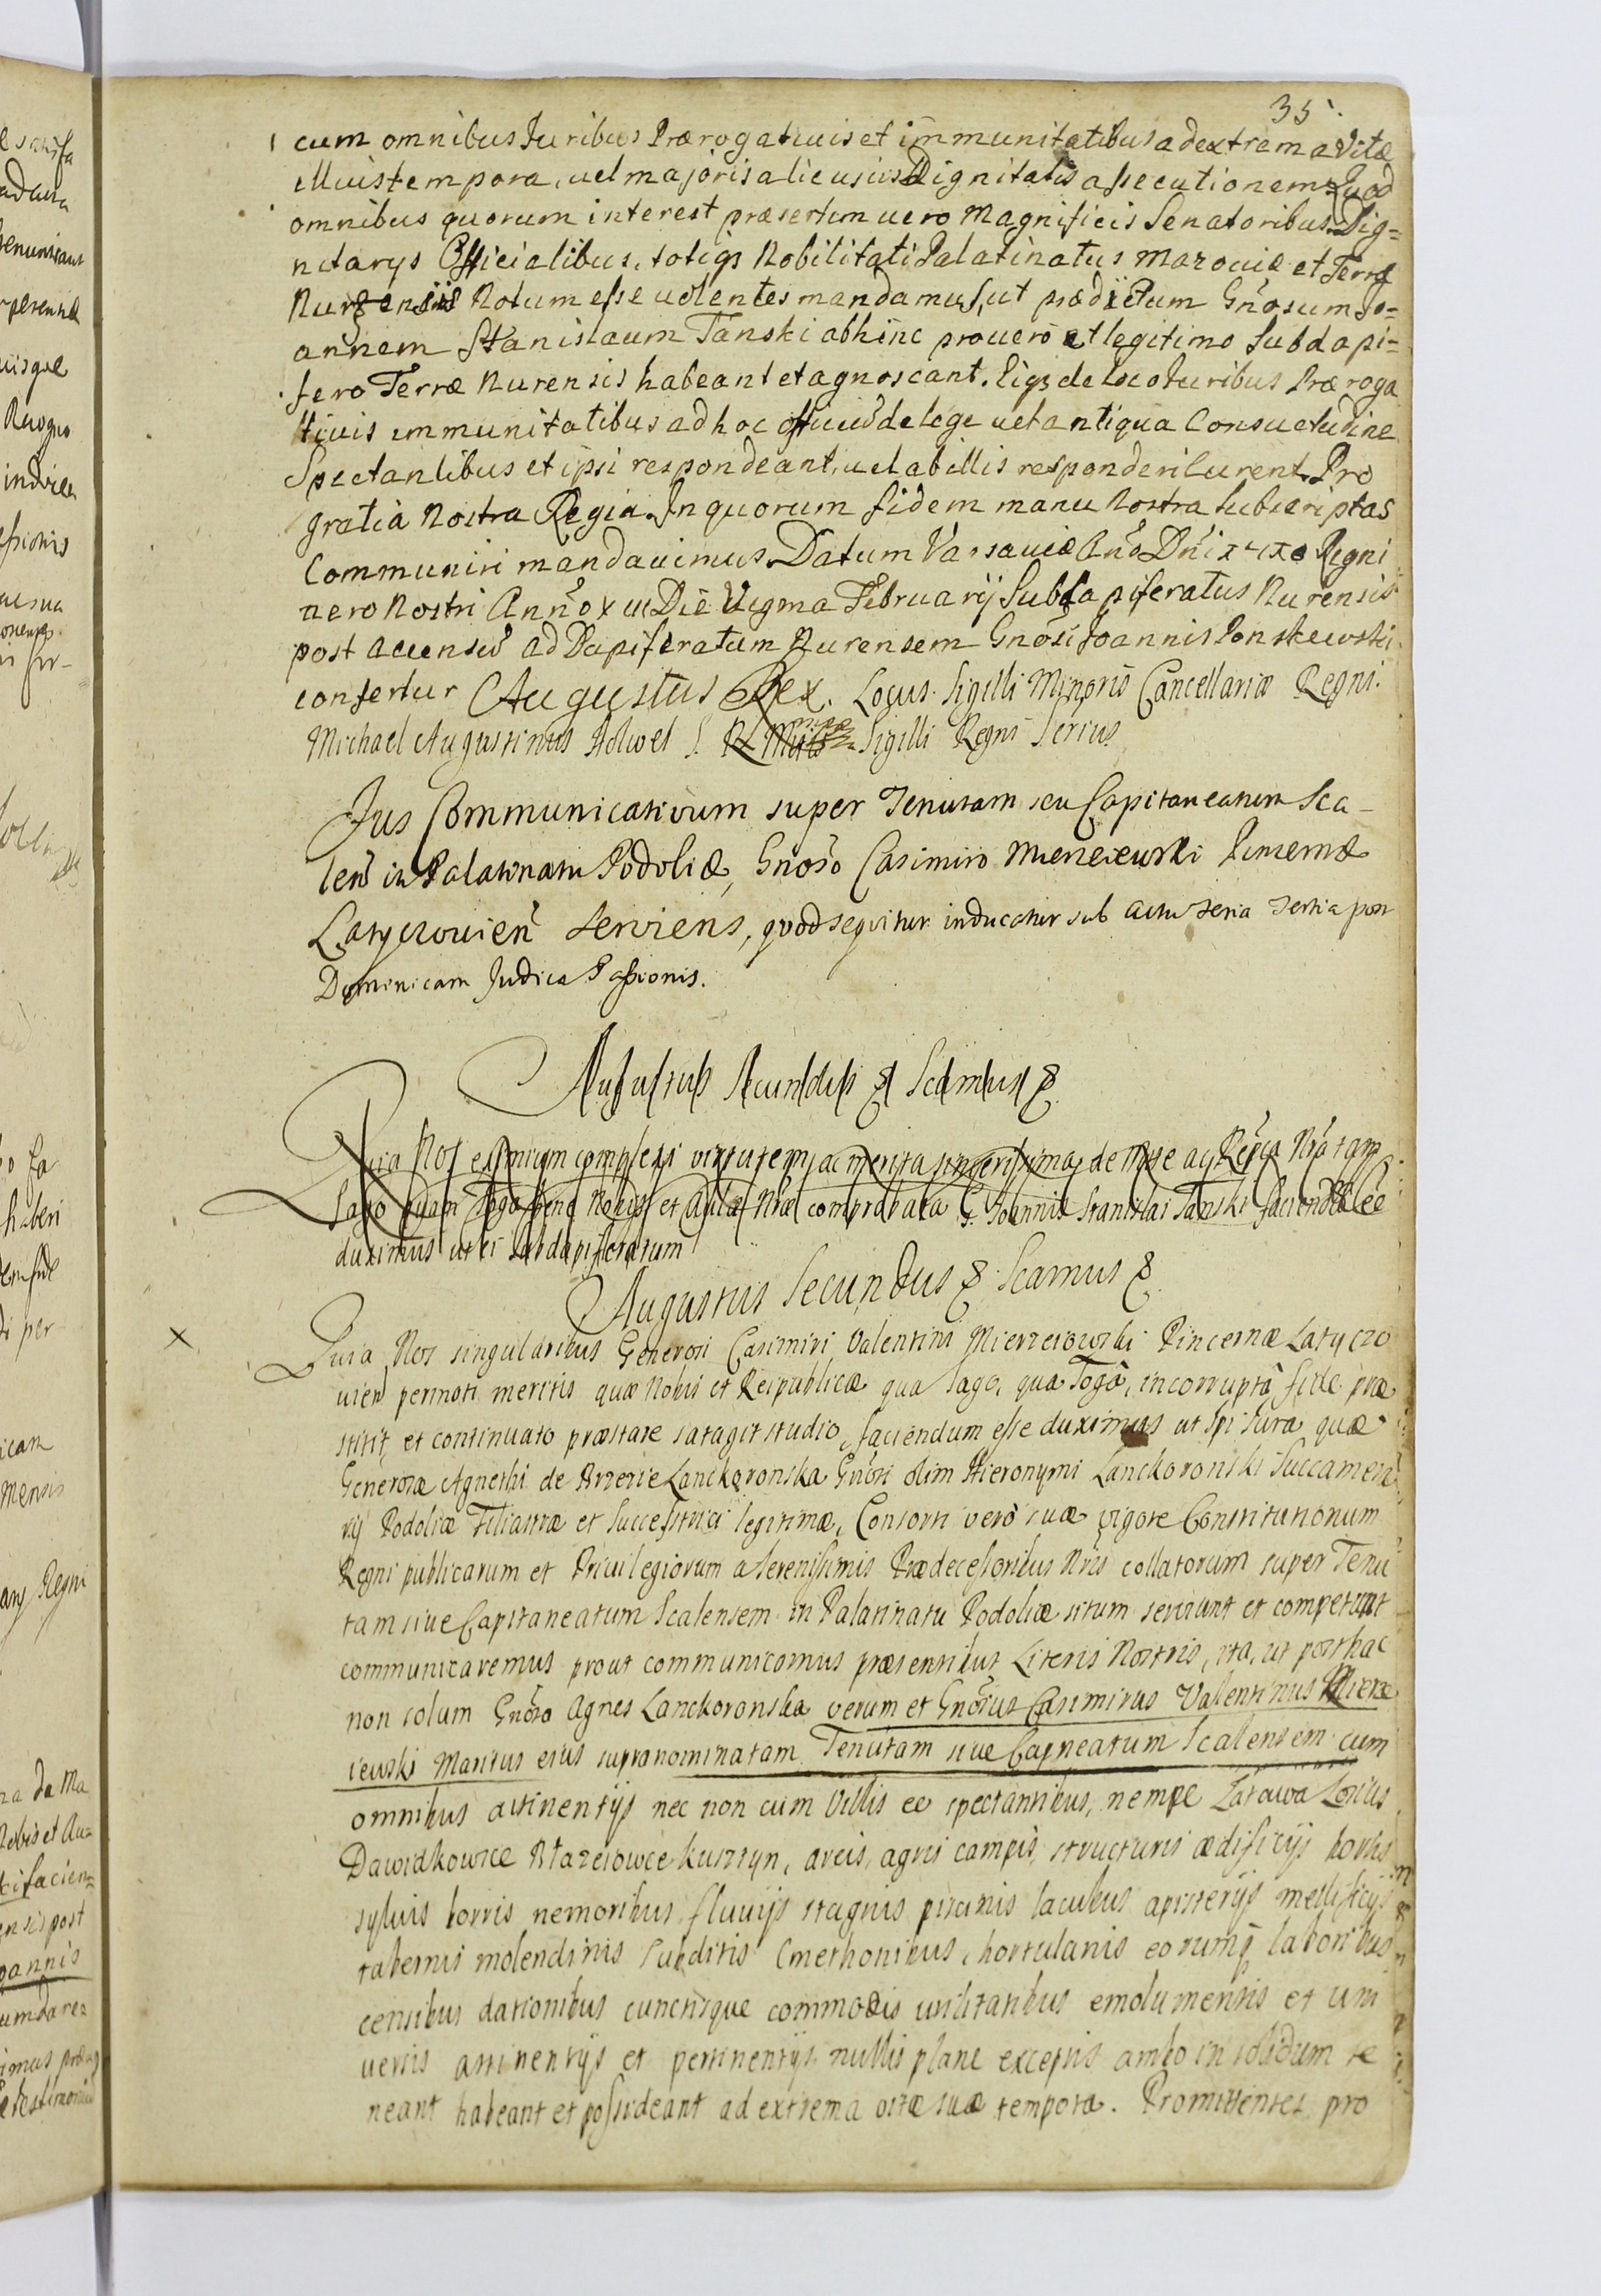 35.
cum omnibus Juribus Prærogativis et immunitatibus ad extrema Vitæ
illius tempora, uel majoris alicujus Dignitatis assecutionem. Quod
omnibus quorum interest præsertim uero Magnificis Senatoribus Dig=
nitarys Officialibus, totiqs Nobilitati Palatinatus Mazouiæ et Terræ
Nurzensis Notum esse uolentes mandamus, ut prædictum Gnosum Jo=
annem Stanislaum Tanski abhinc pro uero et legitimo Subdapi=
fero Terræ Nurensis habeant et agnoscant. Eiqs de loco Juribus Præroga
tiuis immunitatibus ad hoc officiū de lege uel antiqua Consuetudine
Spectantibus et ipsi respondeant, uel ab illis responderi curent. Pro
gratia Nostra Regia. In quorum fidem manu Nostra subscriptas
Communiri mandauimus. Datum Varsauiæ Anō Dni Regni
uero Nostri Anno Die Vigma February Subdapiferatus Nurensis
post accensū ad Dapiferatum Nurensem Gnosi Joannis
confertur Augustus Rex. Locus Sigilli Minoris Cancellariæ Regni.
Michael Augustinus S. R. Sigilli Regni
Jus Communicativum super Tenutam seu Capitaneatum Sca-
len in Palatinatu Podoliæ, Gnoso Casimiro Mierzeiewski Pincernæ
Latyczouien serviens, quod sequitur inducatur sub actu Feria Tertia post
Dominicam Judica Passionis.
Augustus Secundus & Scamus &
Quia Nos eximiam complexi virtutem, ac merita de Nobis ac Regia Nra tam
Sago quam Toga bene Nobis et Aulæ Nræ comprobata G. Joannis Stanislai Tanski faciendū eē
duximus ut ei Subdapiferatum
Augustus Secundus & Scamus &
× Quia Nos singularibus Generosi Casimiri Valentini Mierzeiowski Pincernæ Latyczo
uien permoti meritis quæ Nobis et Reipublicæ qua Sago, qua Toga, incorruptâ fide præ
stitit, et continuato præstare satagit studio, faciendum esse duximus ut Ipi Jura quæ
Generosæ Agnethi de Brzezie Lanckoronska Gnosi olim Hieronymi Lanckoronski Succamera
rij Podoliæ Filiastræ et Successtrici legitimæ, Consorti vero suæ vigore Constitutionum
Regni publicarum et Priuilegiorum a Serenissimis Prædecessoribus Nris collatorum super Tenu
tam siue Capitaneatum Scalensem in Palatinatu Podoliæ situm serviunt et competunt
communicaremus prout communicamus præsentibus Literis Nostris, ita, ut posthac
non solum Gnosa Agnes Lanckoronska verum et Gnosus Casimirus Valentinus Mierze
iewski Maritus eius supranominatam Tenutam siue Capneatum Scalensem cum
omnibus attinentijs nec non cum Villis eo spectantibus, nempe Zatowa
Dawidkowce Blazeiowce Kusztyn, areis, agris campis, structuris ædificijs hortis
syluis borris nemoribus fluuijs stagnis piscinis lacubus apisterijs mellificijs
tabernis molendinis Subditis Cmethonibus, hortulanis eorumq laboribus
censibus dationibus cunctisque commodis utilitatibus emolumentis et uni
uersis attinentijs et pertinentijs nullis plane exceptis ambo in solidum te
neant habeant et possideant ad extrema vitæ suæ tempora. Promittentes pro